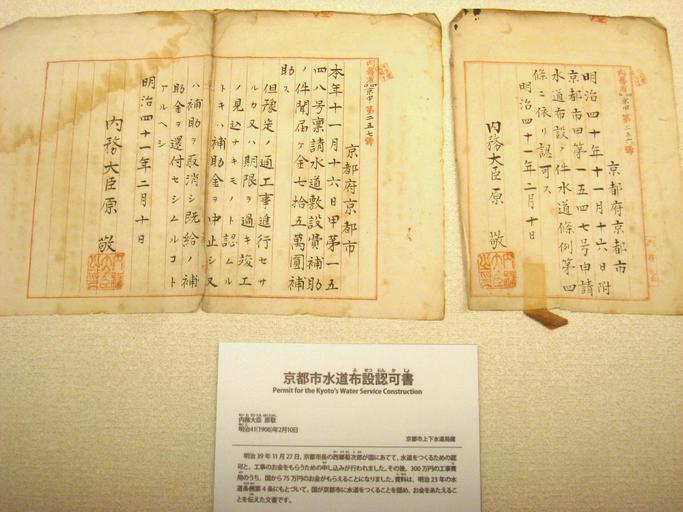 内務省京甲第二五六號
京都府京都市
明治四十年十一月十六日附
京都市甲第一五四七号申請
水道布設ノ件水道条例第四
條ニ依リ認可ス
明治四十一年二月十日
内務大臣原 敬
内務省京甲第二五七號
京都府京都市
本年十一月十六日甲第一五
四八号禀請水道敷設費補助
ノ件聞届ケ金七拾五萬圓補
助ス
但豫定ノ通工事進行セサ
ルカ又ハ期限ヲ過キ竣工
ノ見込ナキモノト認ムル
トキハ補助金ヲ中止シ又
ハ補助ヲ取消シ既給ノ補
助金ヲ還付セシムルコト
アルヘシ
明治四十一年二月十日
内務大臣原 敬
京都市水道布設認可書
Permit for the Kyoto's Water Service Construction
内務大臣 原敬
明治41(1908)年2月10日
京都市上下水道局蔵
明治39年11月27日、京都市長の西郷菊次郎が国にあてて、水道をつくるための認
可と、工事のお金をもらうための申し込みが行われました。その後、300万円の工事費
用のうち、国から75万円のお金がもらえることになりました。資料は、明治23年の水
道条例第4条にもとづいて、国が京都市に水道をつくることを認め、お金をあたえるこ
とを伝えた文書です。